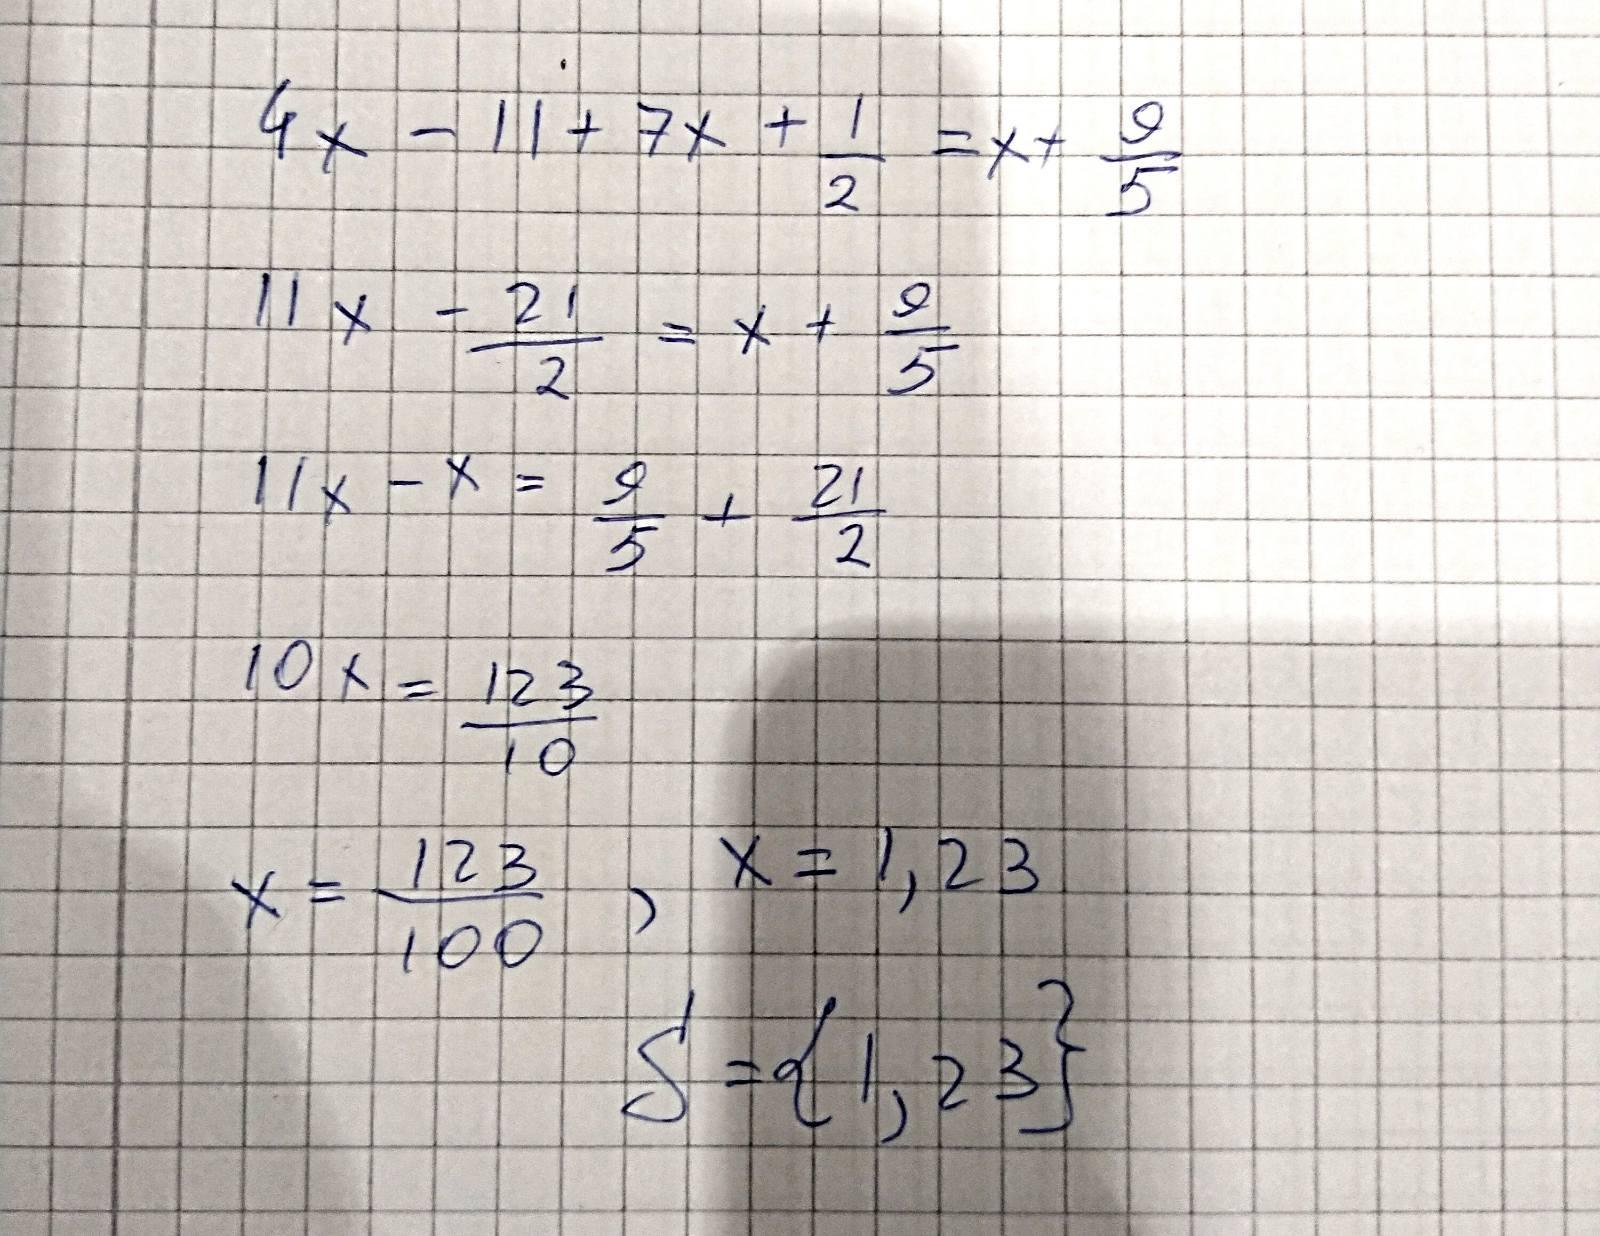 4x - 11 + 7x + 1/2 = x + 9/5
11x - 21/2 = x + 9/5
11x - x = 9/5 + 21/2
10x = 123/10
x = 123/100 , x = 1,23
S = {1,23}